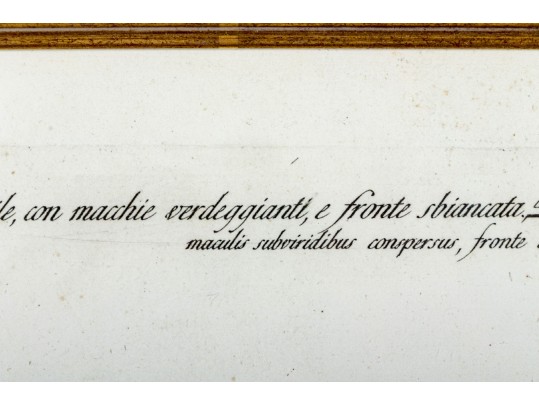 le, con macchie verdeggianti, e fronte sbiancata.
maculis subviridibus conspersus, fronte